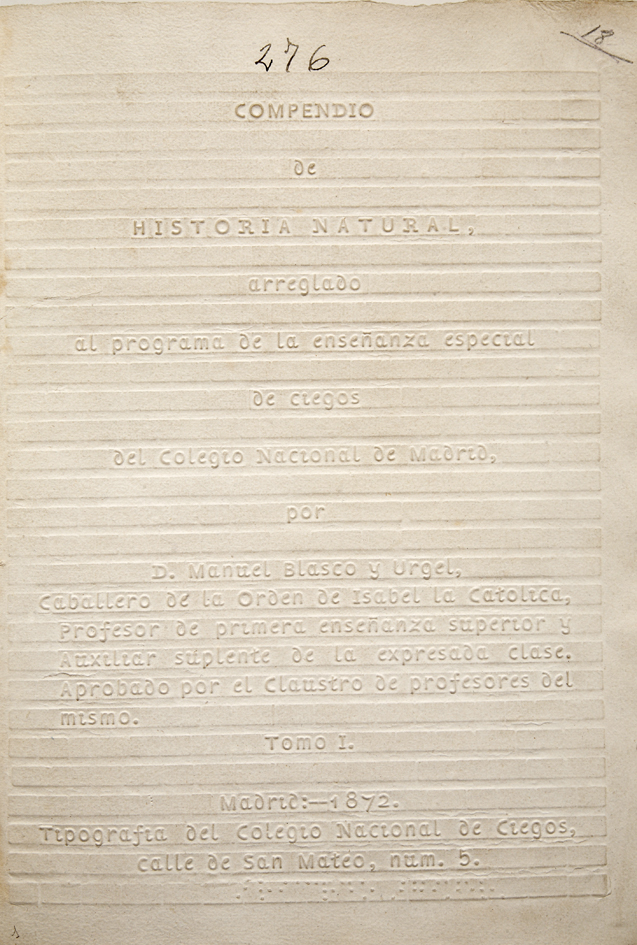 18
276
COMPENDIO
de
HISTORIA NATURAL,
arreglado
al programa de la enseñanza especial
de ciegos
del Colegio Nacional de Madrid,
por
D. Manuel Blasco y Urgel,
Caballero de la Orden de Isabel la Catolica,
Profesor de primera enseñanza superior y
Auxiliar suplente de la expresada clase.
Aprobado por el Claustro de profesores del
mismo.
Tomo I.
Madrid:—1872.
Tipografia del Colegio Nacional de Ciegos,
calle de San Mateo, num. 5.